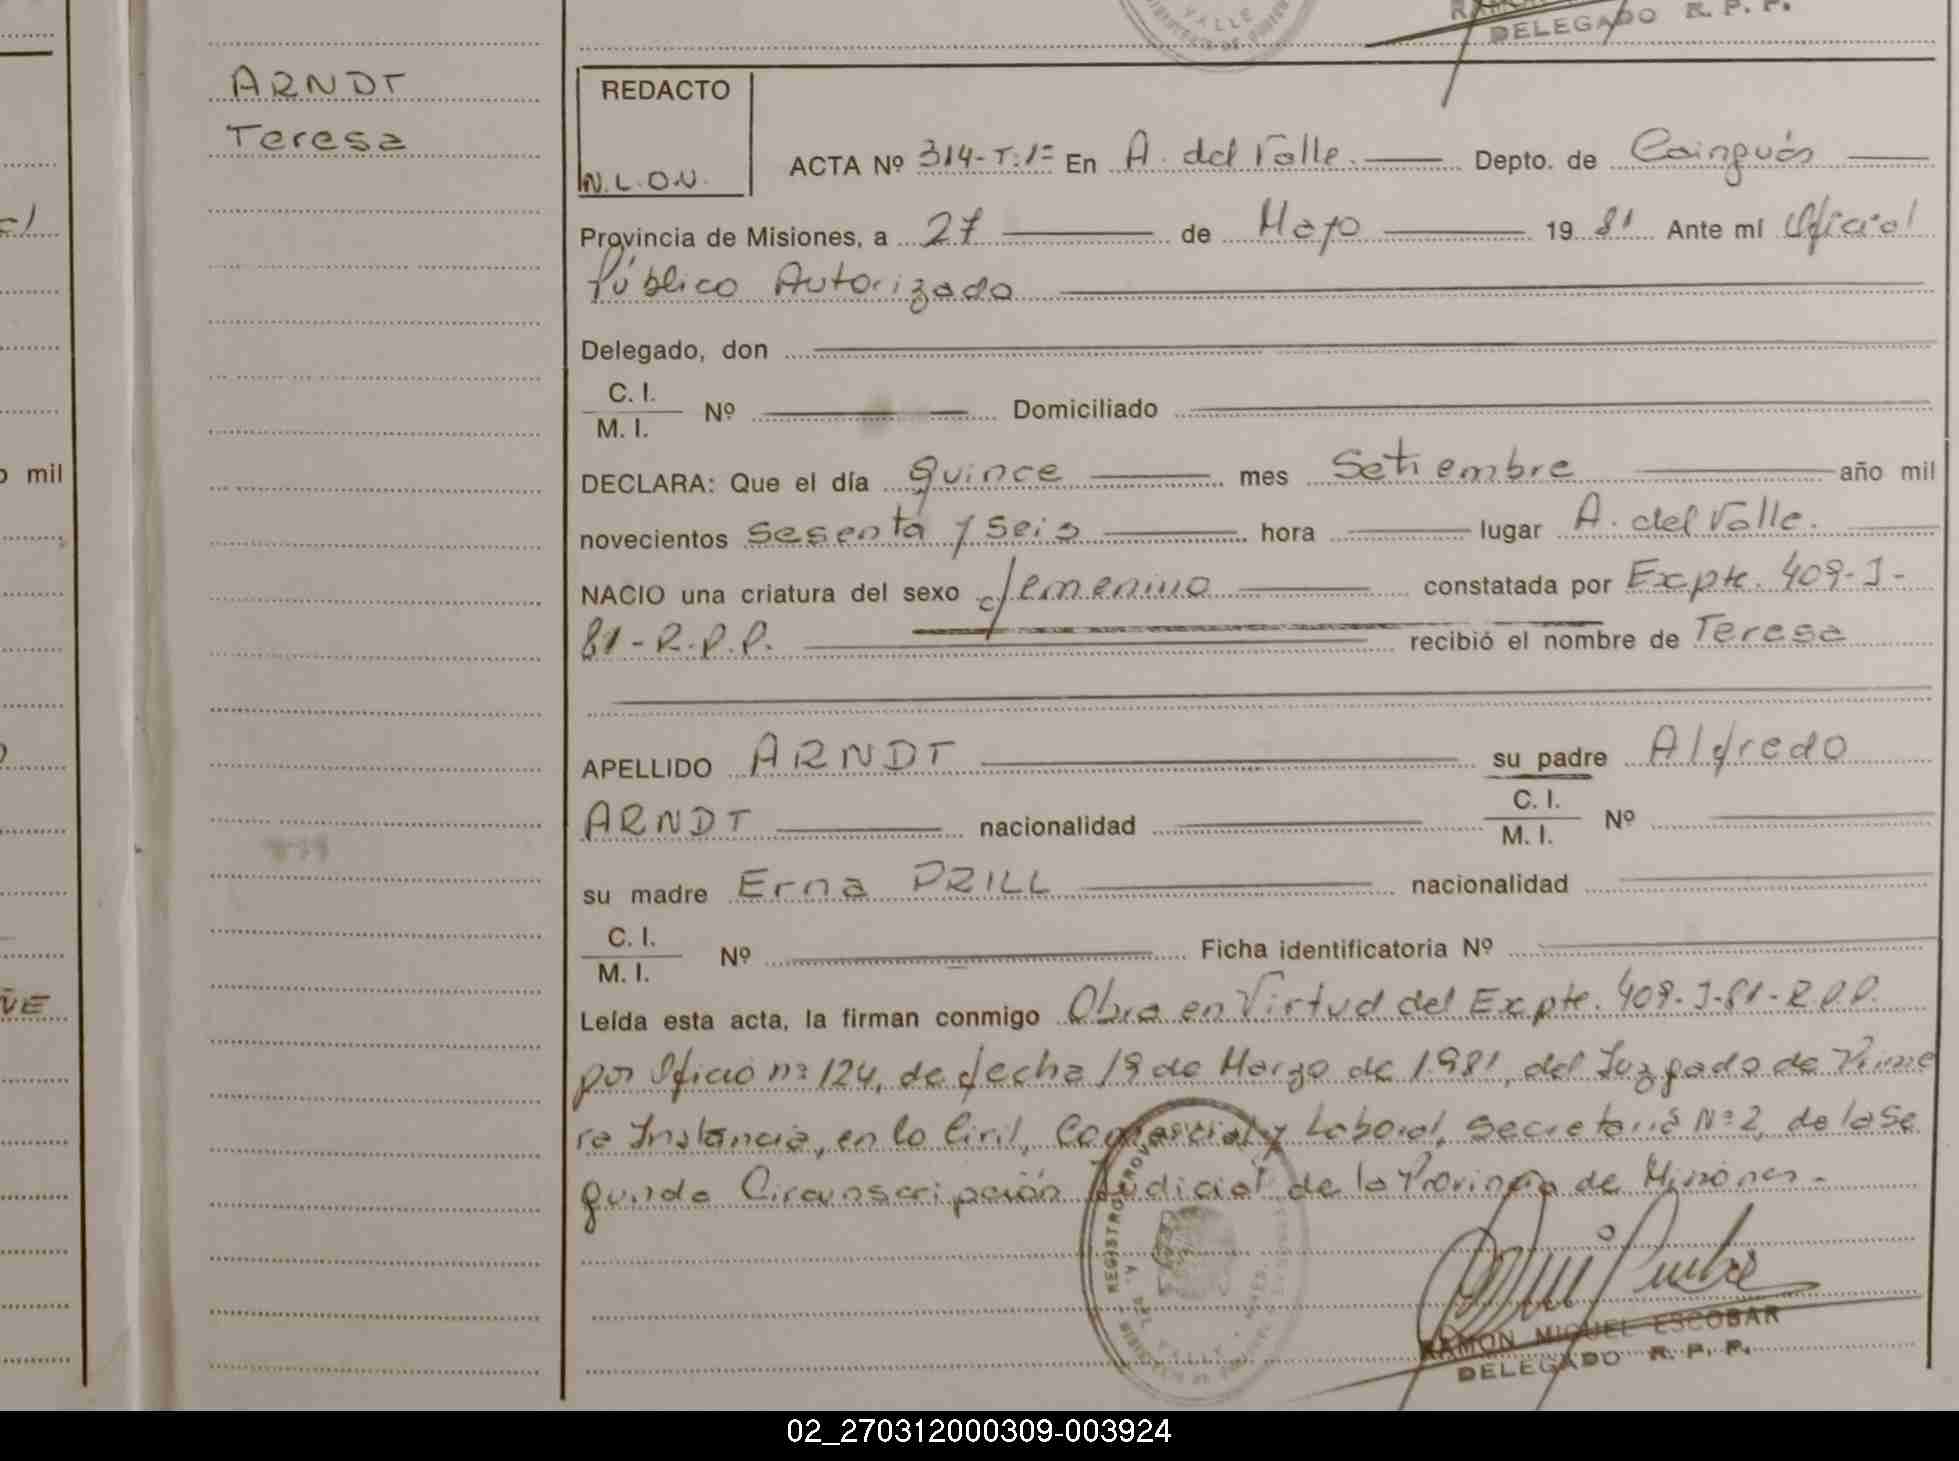 VALLE
DELEGADO R. P. P.
cl
o mil
ÑE
ARNDT
Teresa
REDACTO
N.L.O.N.
ACTA Nº 314-T:1º En A. del Valle. Depto. de Cainguás
Provincia de Misiones, a 27 de Mayo 19 81 Ante mí Oficial
Público Autorizado
Delegado, don
C. I.
M. I. Nº Domiciliado
DECLARA: Que el día quince mes Setiembre año mil
novecientos sesenta y seis hora lugar A. del Valle.
NACIO una criatura del sexo femenino constatada por Expte. 409-J-
81-R.P.P. recibió el nombre de Teresa
APELLIDO ARNDT su padre Alfredo
ARNDT nacionalidad C. I.
M. I. Nº
su madre Erna PRILL nacionalidad
C. I.
M. I. Nº Ficha identificatoria Nº
Leída esta acta, la firman conmigo Obra en Virtud del Expte. 409-J-81-R.P.P.
por Oficio nº 124, de fecha 19 de Marzo de 1.981, del Juzgado de Prime
ra Instancia, en lo Civil, Comercial y Laboral, Secretaria Nº 2, de la Se
gunda Circunscripción Judicial de la Provincia de Misiones.-
REGISTRO PROV
A. DEL VALLE
RAMON MIGUEL ESCOBAR
DELEGADO R. P. P.
02_270312000309-003924